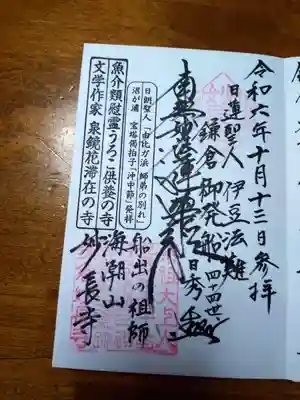 令和六年十月十三日参拝
日蓮聖人 伊豆法難
鎌倉御発船
四十四世
日秀
南無妙法蓮華経
船出の祖師
海潮山
妙長寺
日朗聖人「由比ガ浜 師弟の別れ」
沼が浦 宝塔偈拍子「沖中節」発祥
魚介類慰霊うろこ供養の寺
文学作家 泉鏡花滞在の寺